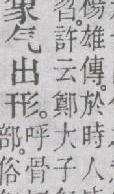 楊雄傳。於時人
。許云鄭大子
象气出形。
呼骨
部。俗